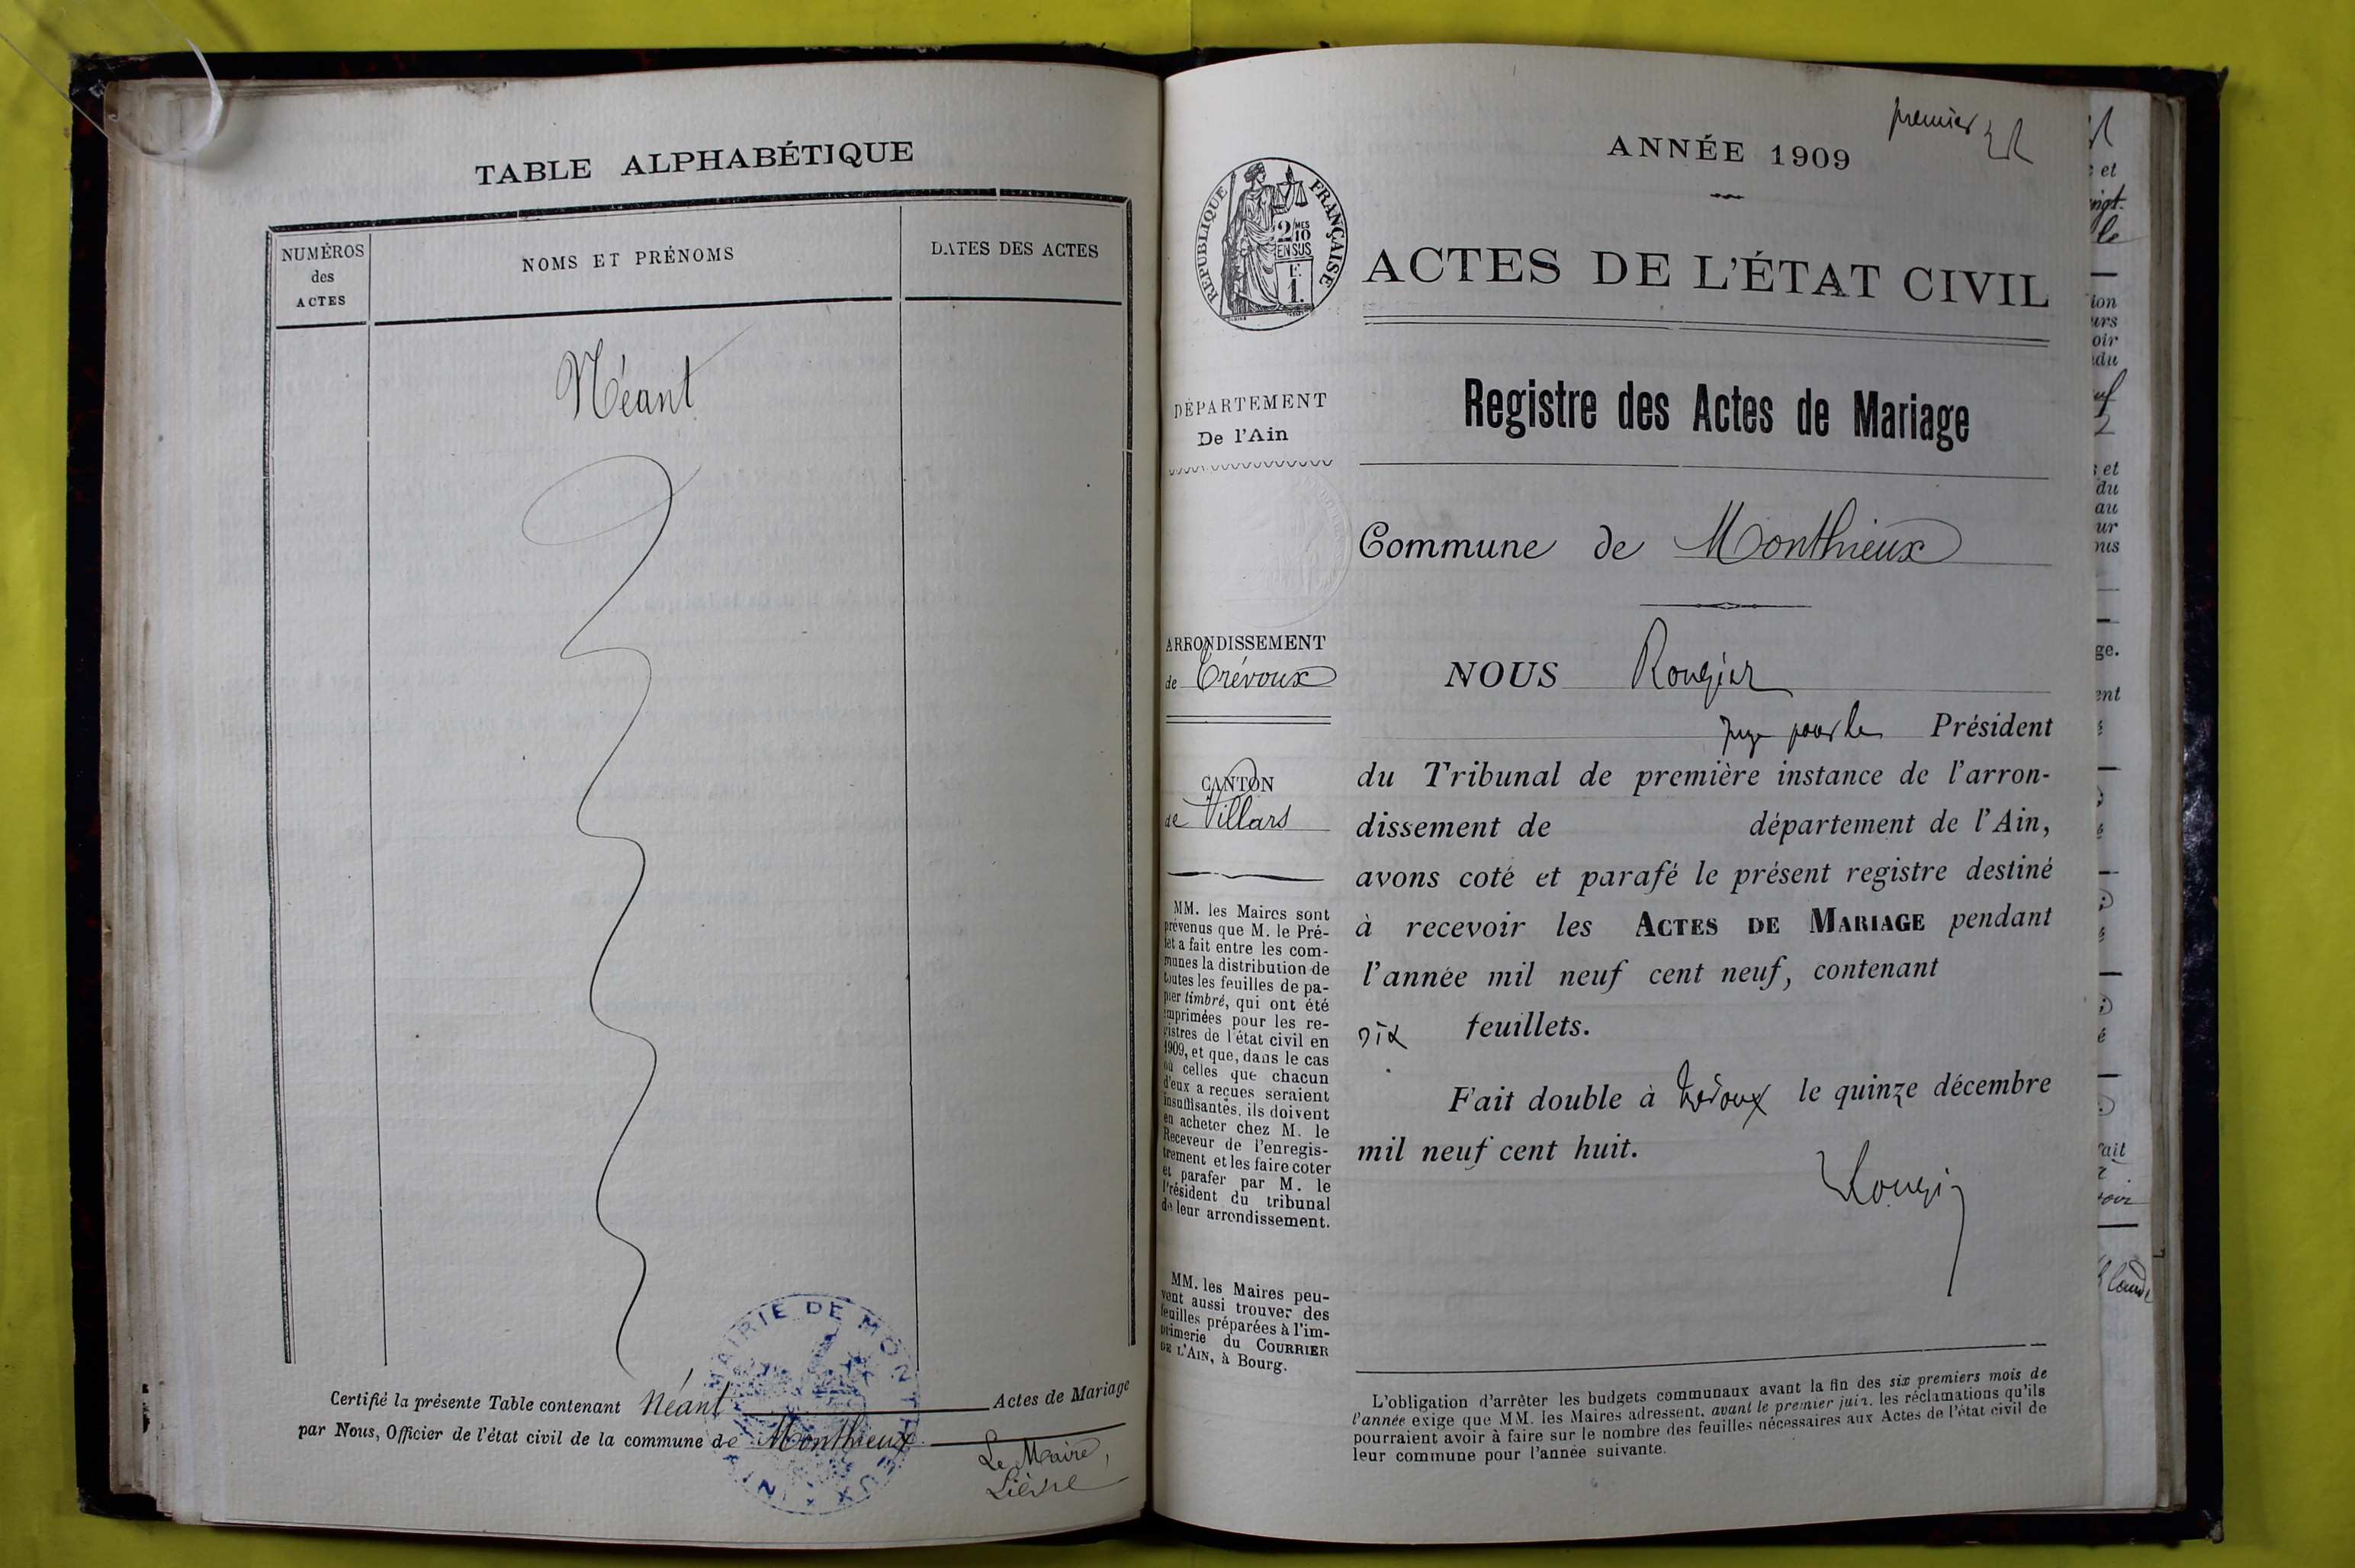 TABLE ALPHABÉTIQUE
NUMÉROS
des
ACTES
NOMS ET PRÉNOMS
DATES DES ACTES
Néant
Certifié la présente Table contenant Néant Actes de Mariage
par Nous, Officier de l'état civil de la commune de Monthieux
Le Maire,
Lièvre
MAIRIE DE MONTHIEUX
AIN
premier
ANNÉE 1909
RÉPUBLIQUE FRANÇAISE
2/10 MES
EN SUS
1F.
ACTES DE L'ÉTAT CIVIL
DÉPARTEMENT
De l'Ain
ARRONDISSEMENT
de Trévoux
CANTON
de Villars
MM. les Maires sont
prévenus que M. le Pré-
fet a fait entre les com-
munes la distribution de
toutes les feuilles de pa-
pier timbré, qui ont été
imprimées pour les re-
gistres de l'état civil en
1909, et que, dans le cas
où celles que chacun
d'eux a reçues seraient
insuffisantes, ils doivent
en acheter chez M. le
Receveur de l'enregis-
trement et les faire coter
et parafer par M. le
Président du tribunal
de leur arrondissement.
MM. les Maires peu-
vent aussi trouver des
feuilles préparées à l'im-
primerie du COURRIER
DE L'AIN, à Bourg.
Registre des Actes de Mariage
Commune de Monthieux
NOUS Rougier
Juge pour le Président
du Tribunal de première instance de l'arron-
dissement de département de l'Ain,
avons coté et parafé le présent registre destiné
à recevoir les ACTES DE MARIAGE pendant
l'année mil neuf cent neuf, contenant
dix feuillets.
Fait double à Trévoux le quinze décembre
mil neuf cent huit.
Rougier
L'obligation d'arrêter les budgets communaux avant la fin des six premiers mois de
l'année exige que MM. les Maires adressent, avant le premier juin, les réclamations qu'ils
pourraient avoir à faire sur le nombre des feuilles nécessaires aux Actes de l'état civil de
leur commune pour l'année suivante.